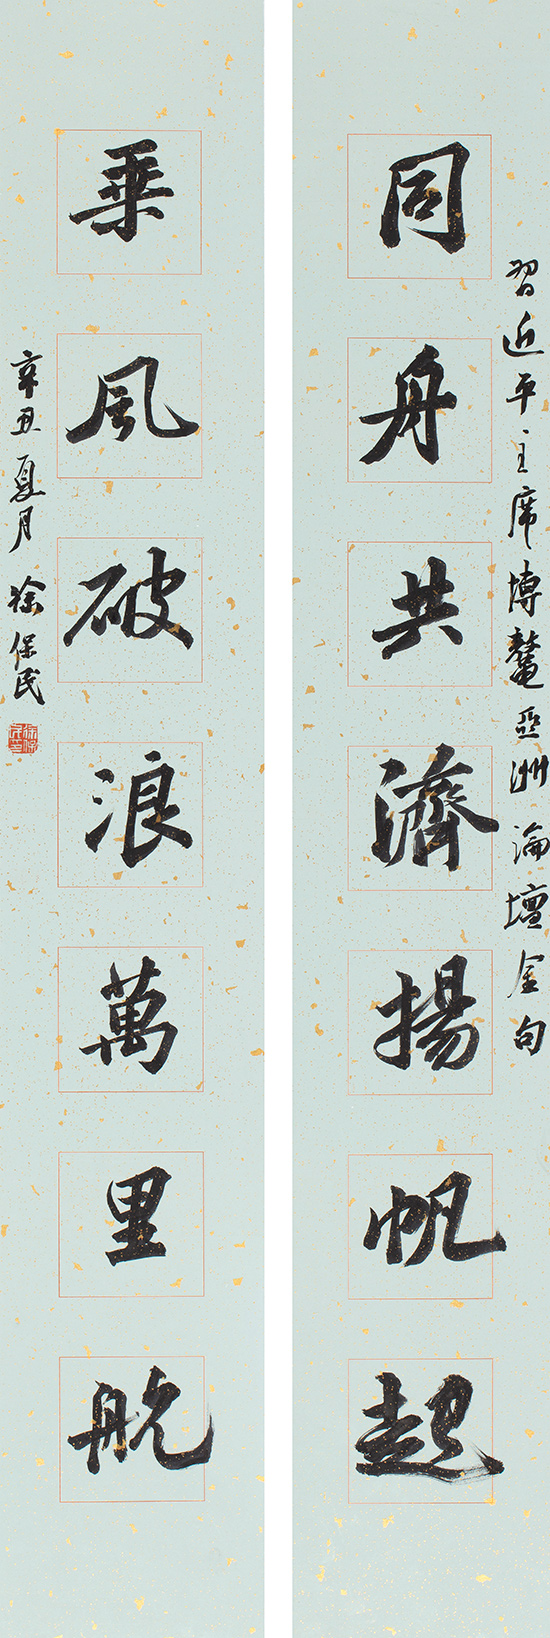 習近平主席博鰲亞洲論壇金句
同舟共濟揚帆起
乘風破浪萬里航
辛丑夏月 徐保民